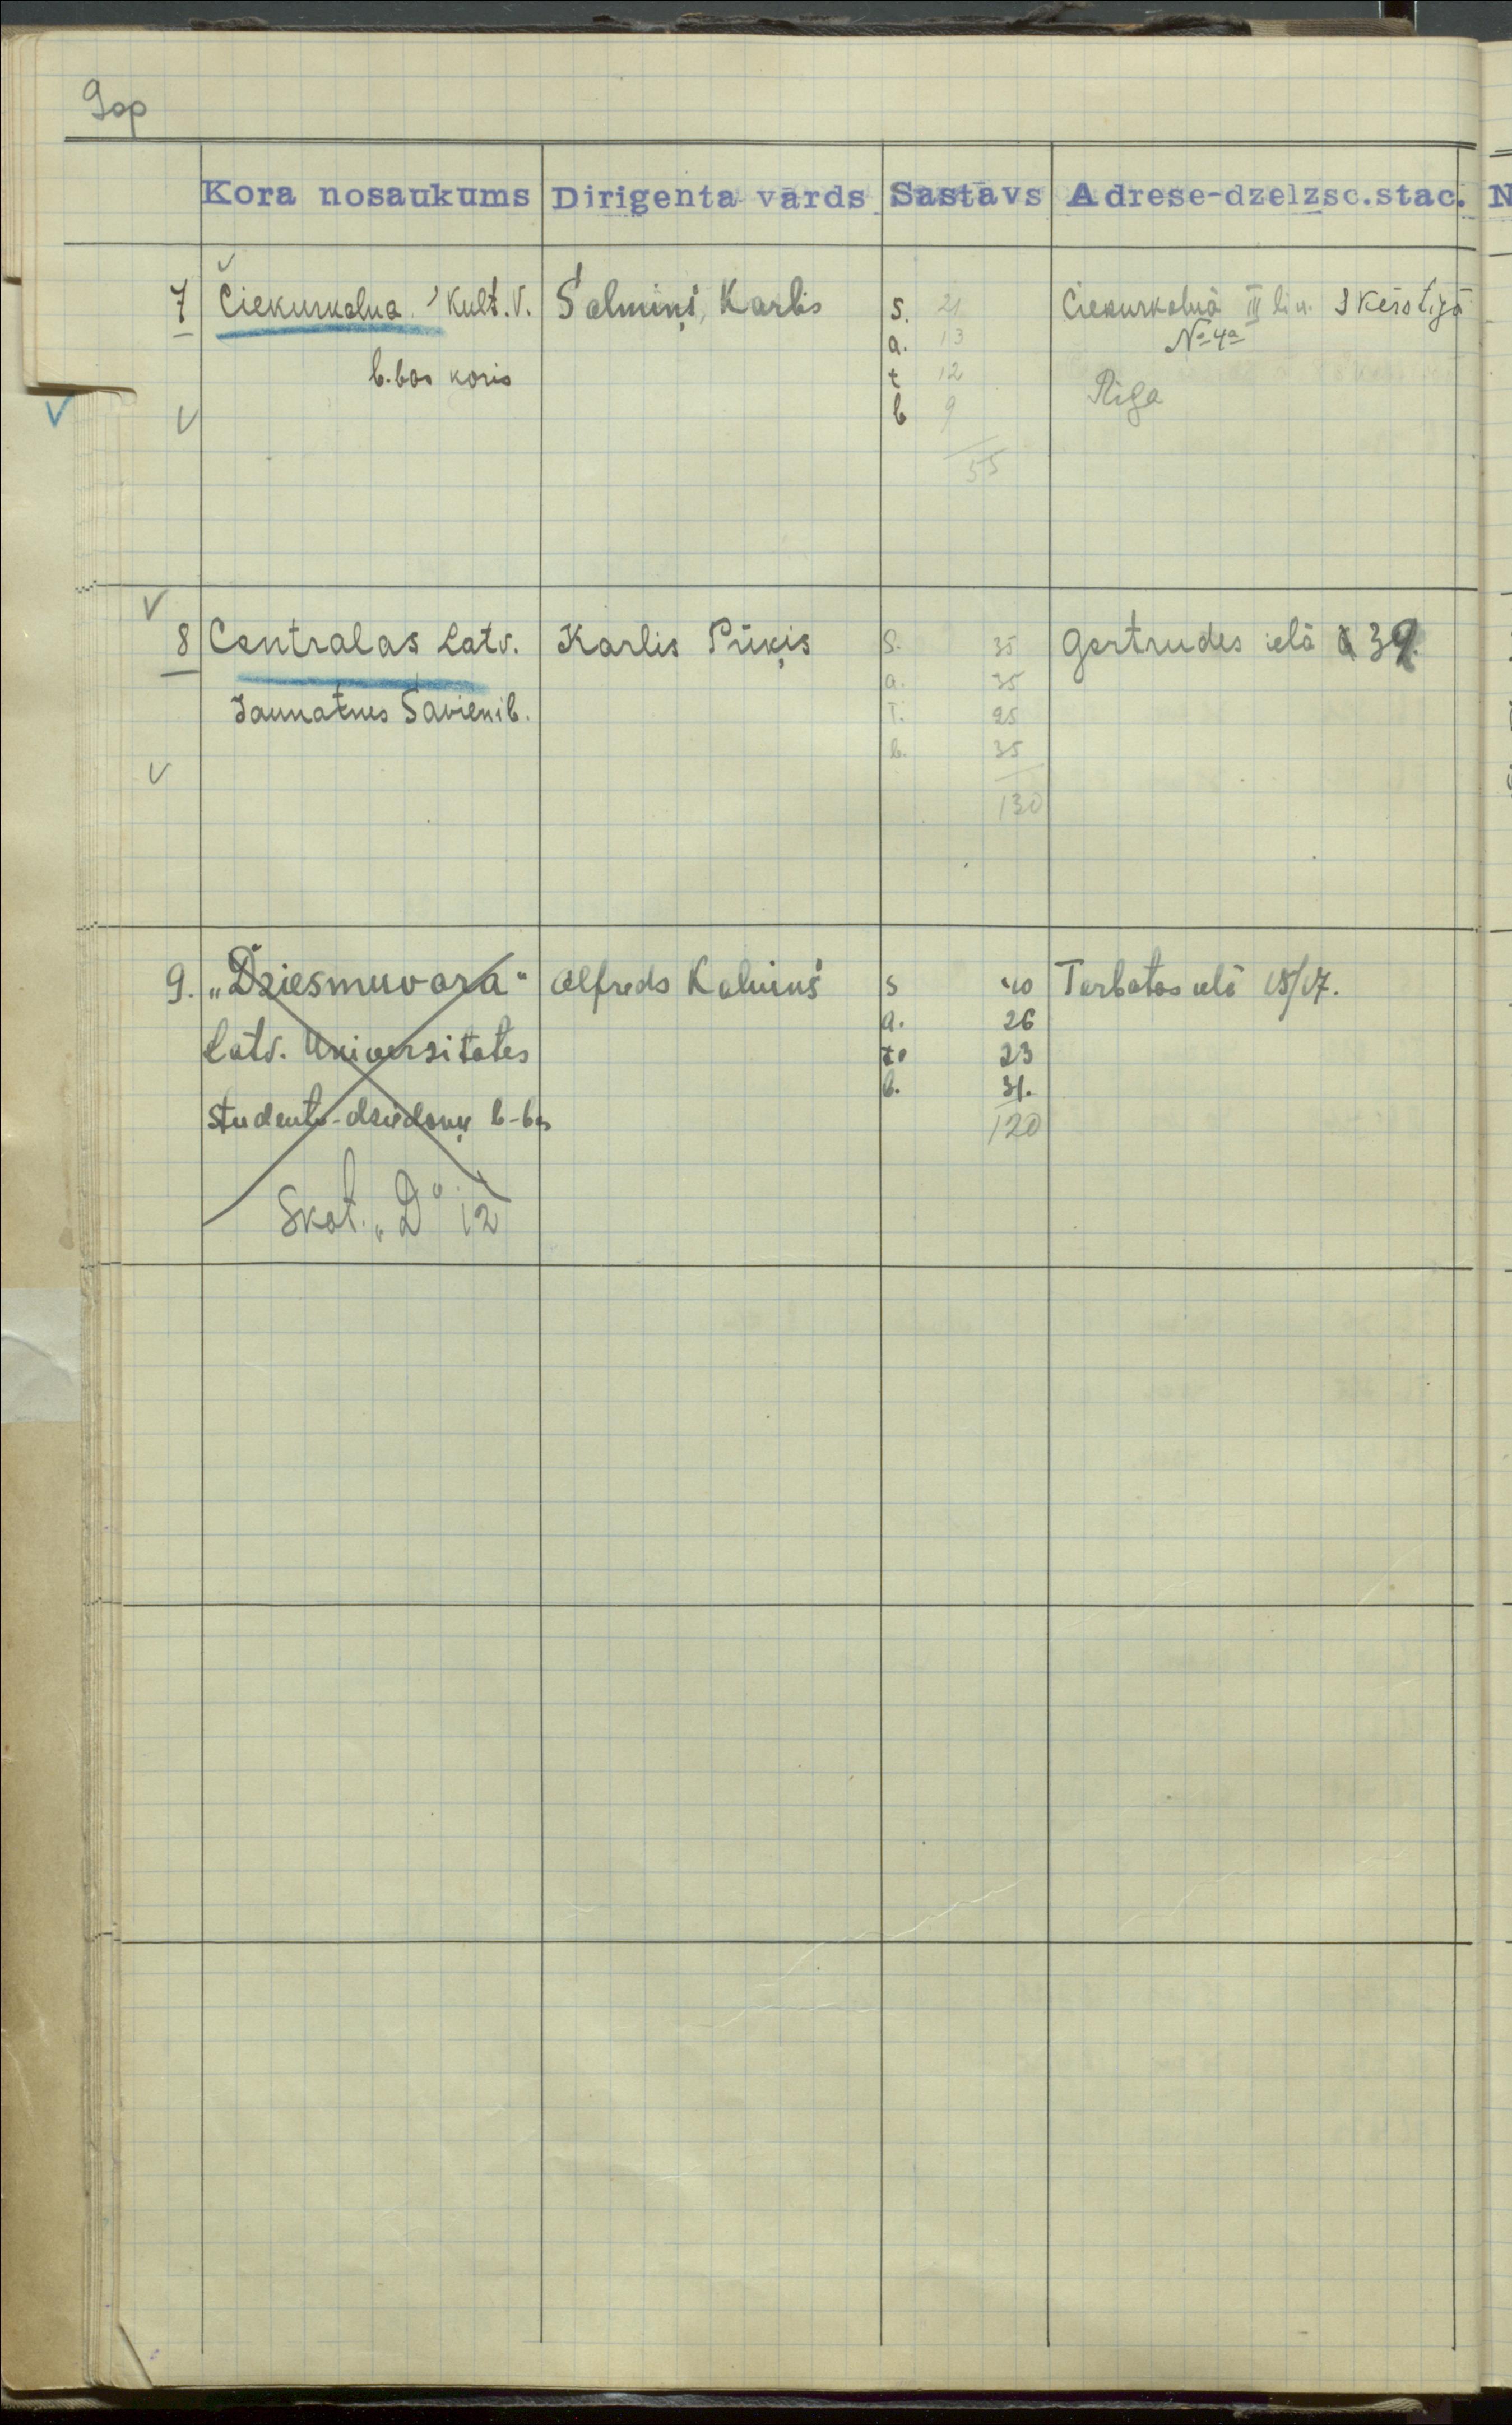 9op
Kora nosaukums Dirigenta vārds Sastāvs Adrese-dzelzsc.stac. N
7 Čiekurkalna Kult. v. Salmiņš, Karlis s. 21 Čiekurkalnā III lin. I Kerstijā
a. 13 № 4a
b.bas koris t 12
b 9 Riga
55
8 Centralas Latv. Karlis Pūķis s. 35 Gertrudes ielā 39.
a. 35
Jaunatnes Savienib. T. 25
b. 35
130
9. „Dziesmuvara" Alfreds Kalniņš s 40 Terbatas ielā 15/17.
a. 26
Latv. Universitates t. 23
b. 31.
studentu-dziedoņu b-bas 120
Skat. „D" 12